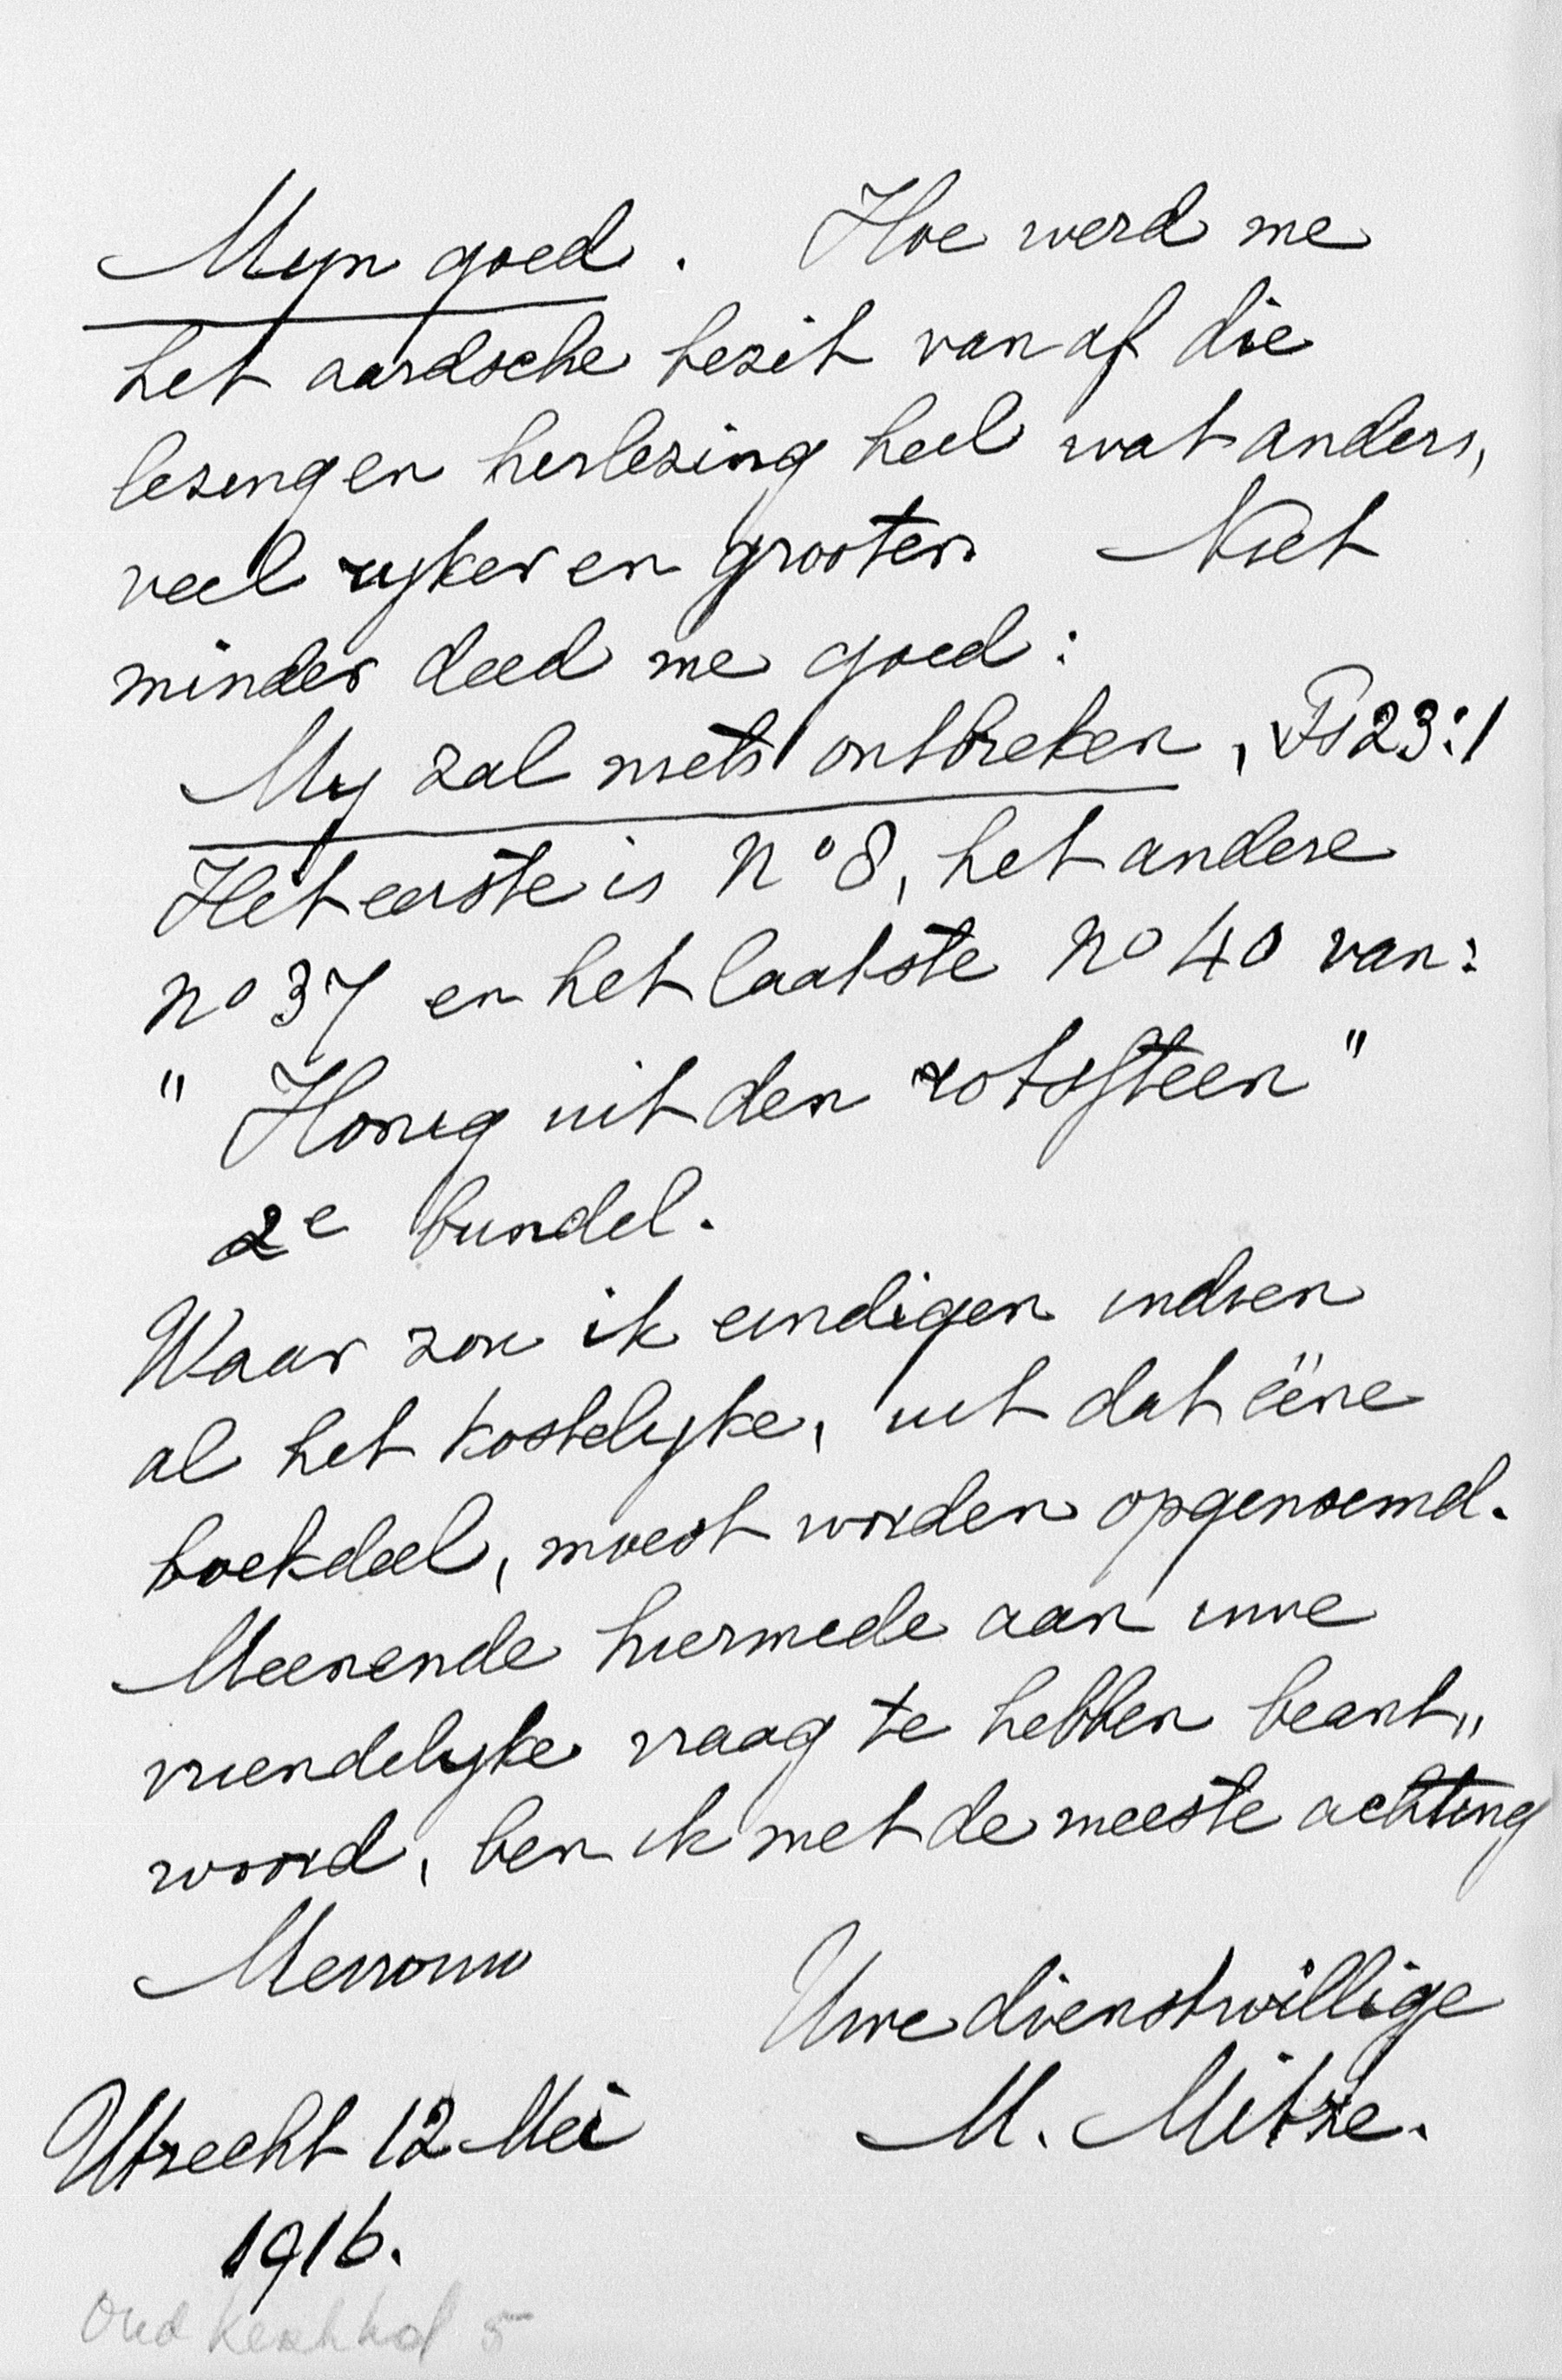 Mijn goed. Hoe werd me
het aardsche bezit van af die
lezing en herlezing heel wat anders,
veel rijker en grooter. Niet
minder deed me goed:
Mij zal niets ontbreken, Ps 23:1
Het eerste is No 8, het andere
no 37 en het laatste no 40 van:
"Honig uit den rotssteen"
2e bundel.
Waar zou ik eindigen indien
al het kostelijke, uit dat ééne
boekdeel, moest worden opgenoemd.
Meenende hiermede aan uwe
vriendelijke vraag te hebben beant„
woord, ben ik met de meeste achting
Mevrouw
Uwe dienstwillige
M. Mitze.
Utrecht 12 Mei
1916.
Oud Kerkhof 5